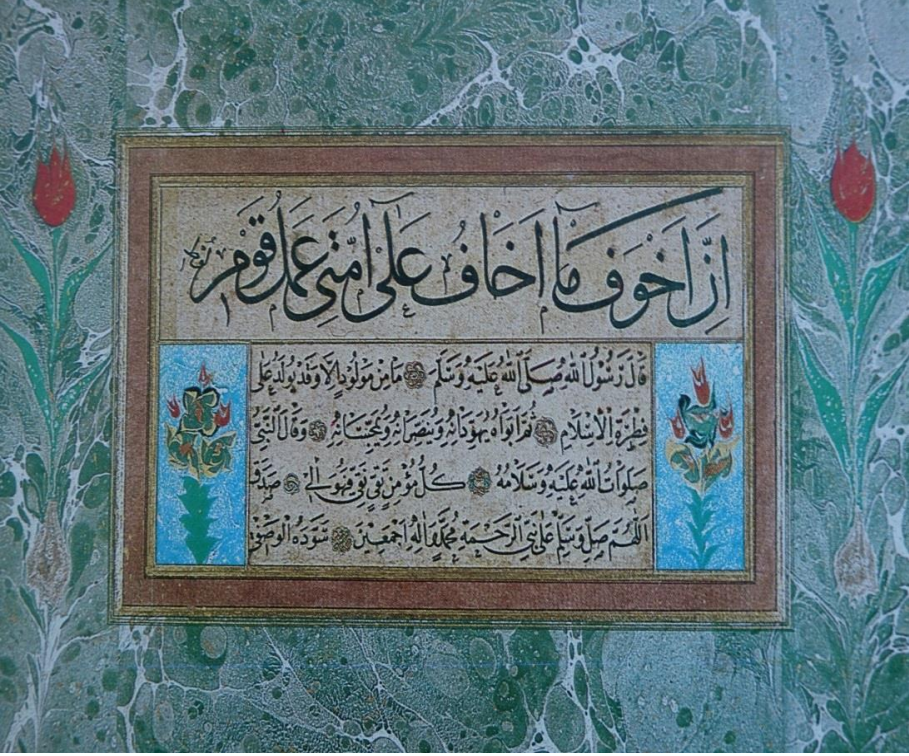 اِنَّ اَخْوَفَ مَا اَخَافُ عَلٰى اُمَّتِى عَمَلُ قَوْمِ
قَالَ رَسُولُ اللهِ صَلَّى اللهُ عَلَيْهِ وَسَلَّمَ مَا مِنْ مَوْلُودٍ اِلَّا وَقَدْ يُولَدُ عَلٰى
فِطْرَةِ الْاِسْلَامِ ثُمَّ اَبَوَاهُ يُهَوِّدَانِهِ وَيُنَصِّرَانِهِ وَيُمَجِّسَانِهِ وَقَالَ النَّبِىُّ
صَلَوَاتُ اللهِ عَلَيْهِ وَسَلَامُهُ كُلُّ مُؤْمِنٍ تَقِىٍّ نَقِىٍّ فَهُوَ اٰلِى صَدَقَ
اَللّٰهُمَّ صَلِّ وَسَلِّمْ عَلٰى نَبِىِّ الرَّحْمَةِ مُحَمَّدٍ وَاٰلِهِ اَجْمَعِينَ سَوَّدَهُ الْوَصْفِى